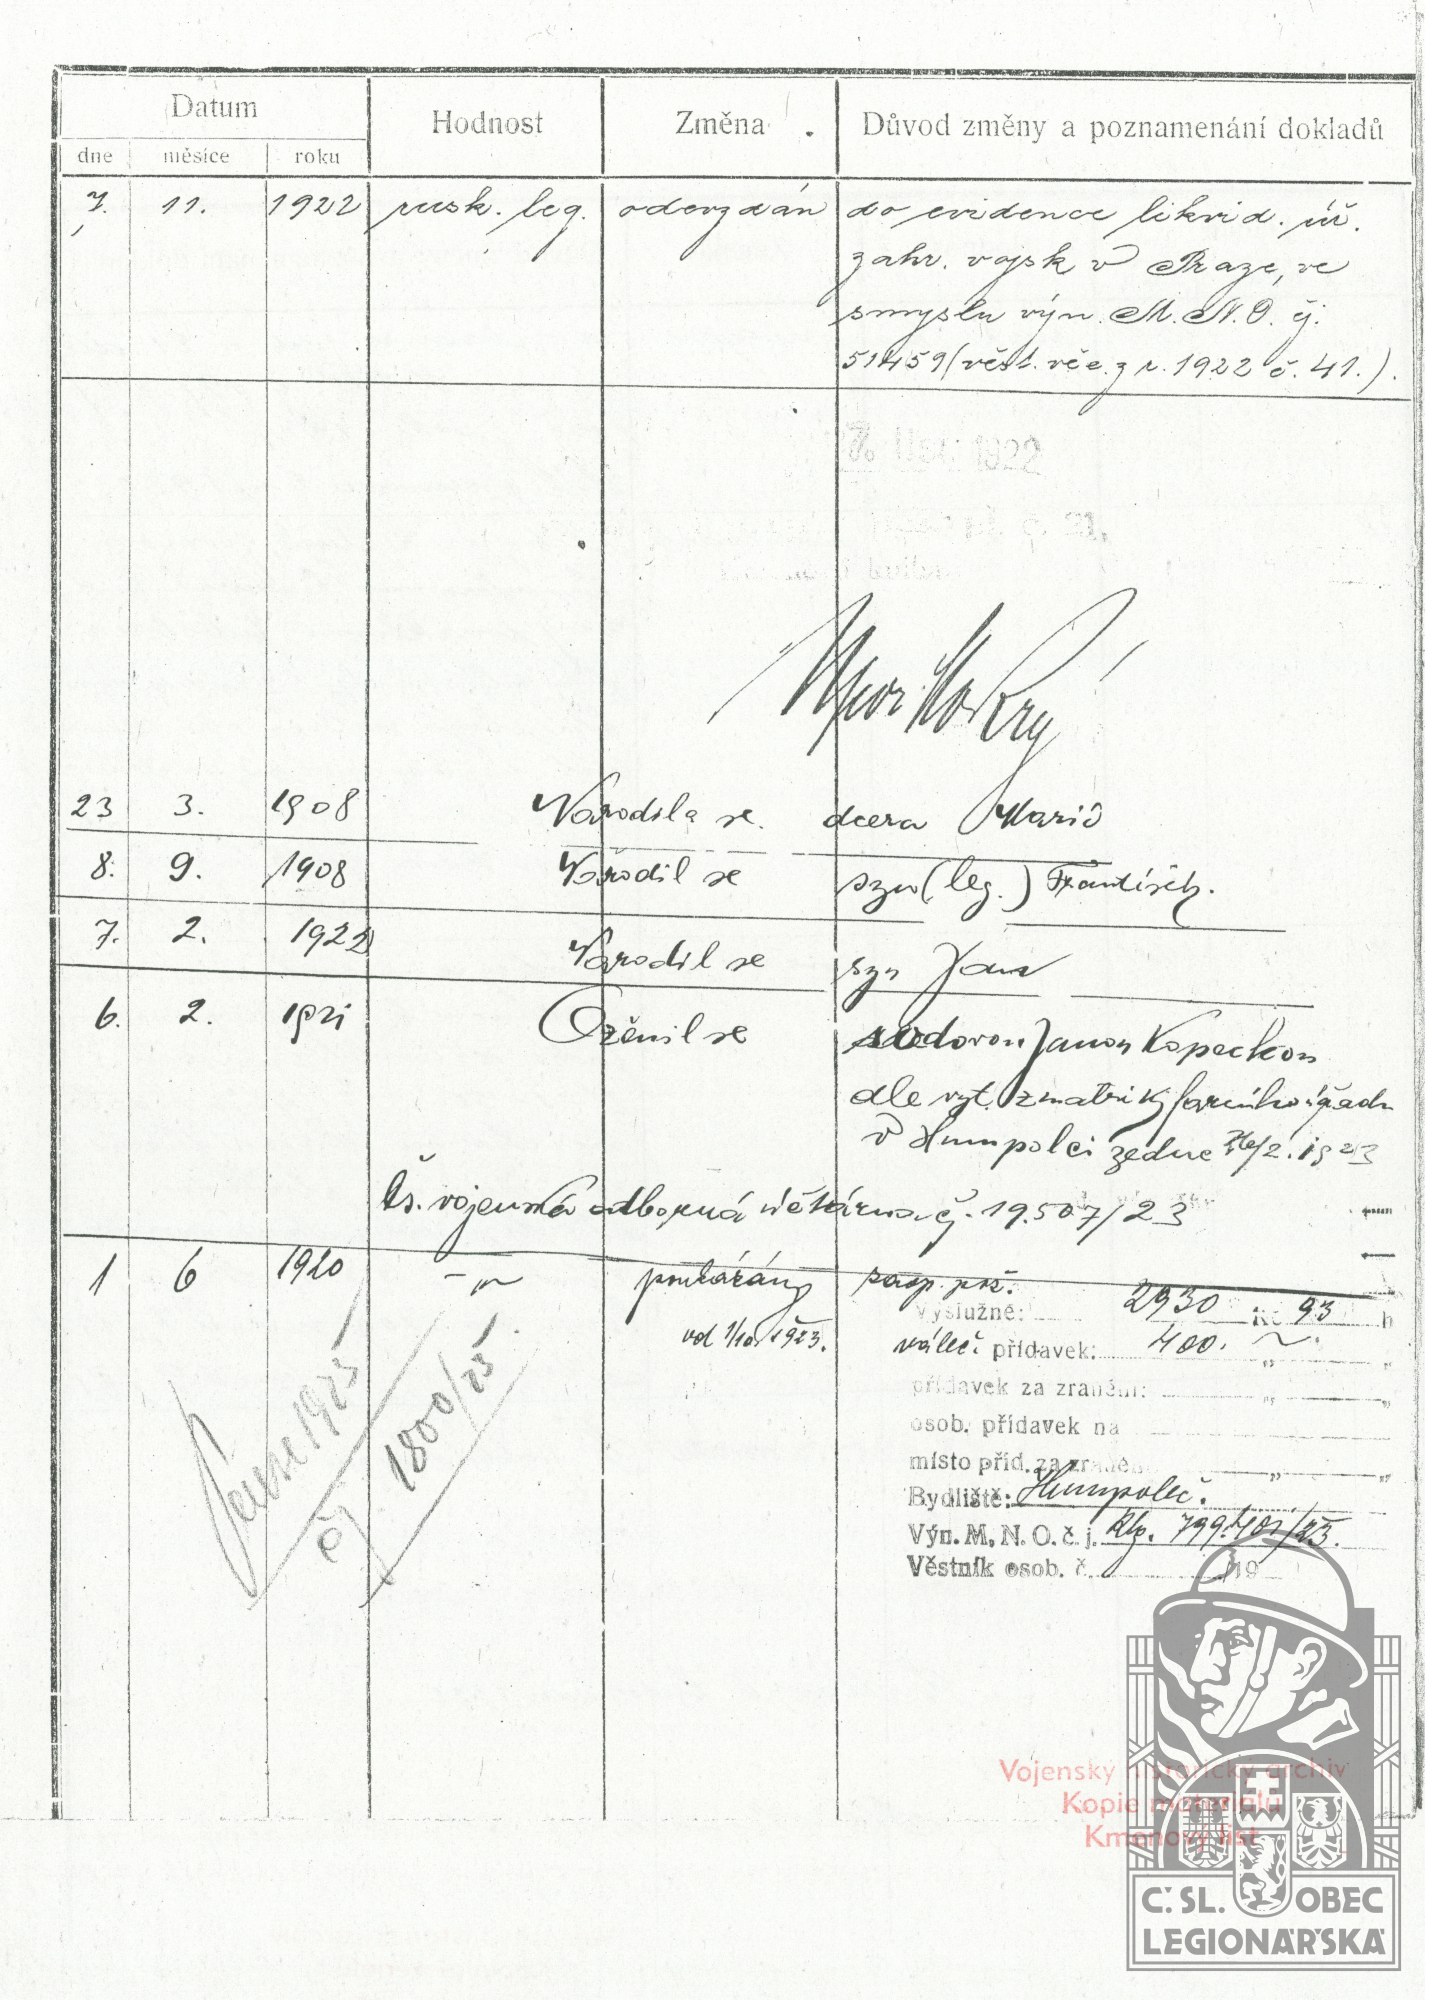 Datum Hodnost Změna Důvod změny a poznamenání dokladů
dne měsíce roku
7. 11. 1922 rusk. leg. odevzdán do evidence likvid. úř.
zahr. vojsk v Praze, ve
smyslu výn. M.N.O. čj.
51459 (věst. věc. z r. 1922 č. 41.).
7. list. 1922
23 3. 1908 Narodila se dcera Marie
8. 9. 1908 Narodil se syn (leg.) František.
7. 2. 1922 Narodil se syn Jan
6. 2. 1921 Oženil se vdovou Janou Kopeckou
dle výt. z matriky farního úřadu
v Humpolci ze dne /2. 1923
čs. vojenská odborná č. 19.507/23
1 6 1920 -„- poukázány zaop. pož.
Výslužné: 2930 Kč 93 h
od 1/10. 1923. váleč. přídavek: 400. „ „
přídavek za zranění: „ „
osob. přídavek na
místo příd. za zranění „ „
Bydliště: Humpolec.
Výn. M. N. O. č. j. 799.401/23.
Věstník osob. č. /19
1925
čj. 1800/25.
Vojenský historický archiv
Kopie materiálu
Kmenový list
Č. SL. OBEC
LEGIONÁŘSKÁ